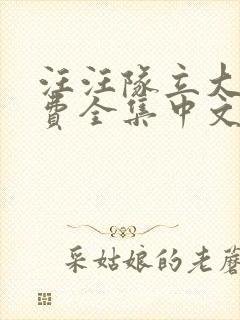 汪汪队立大
费全集中文
采姑娘的老蘑